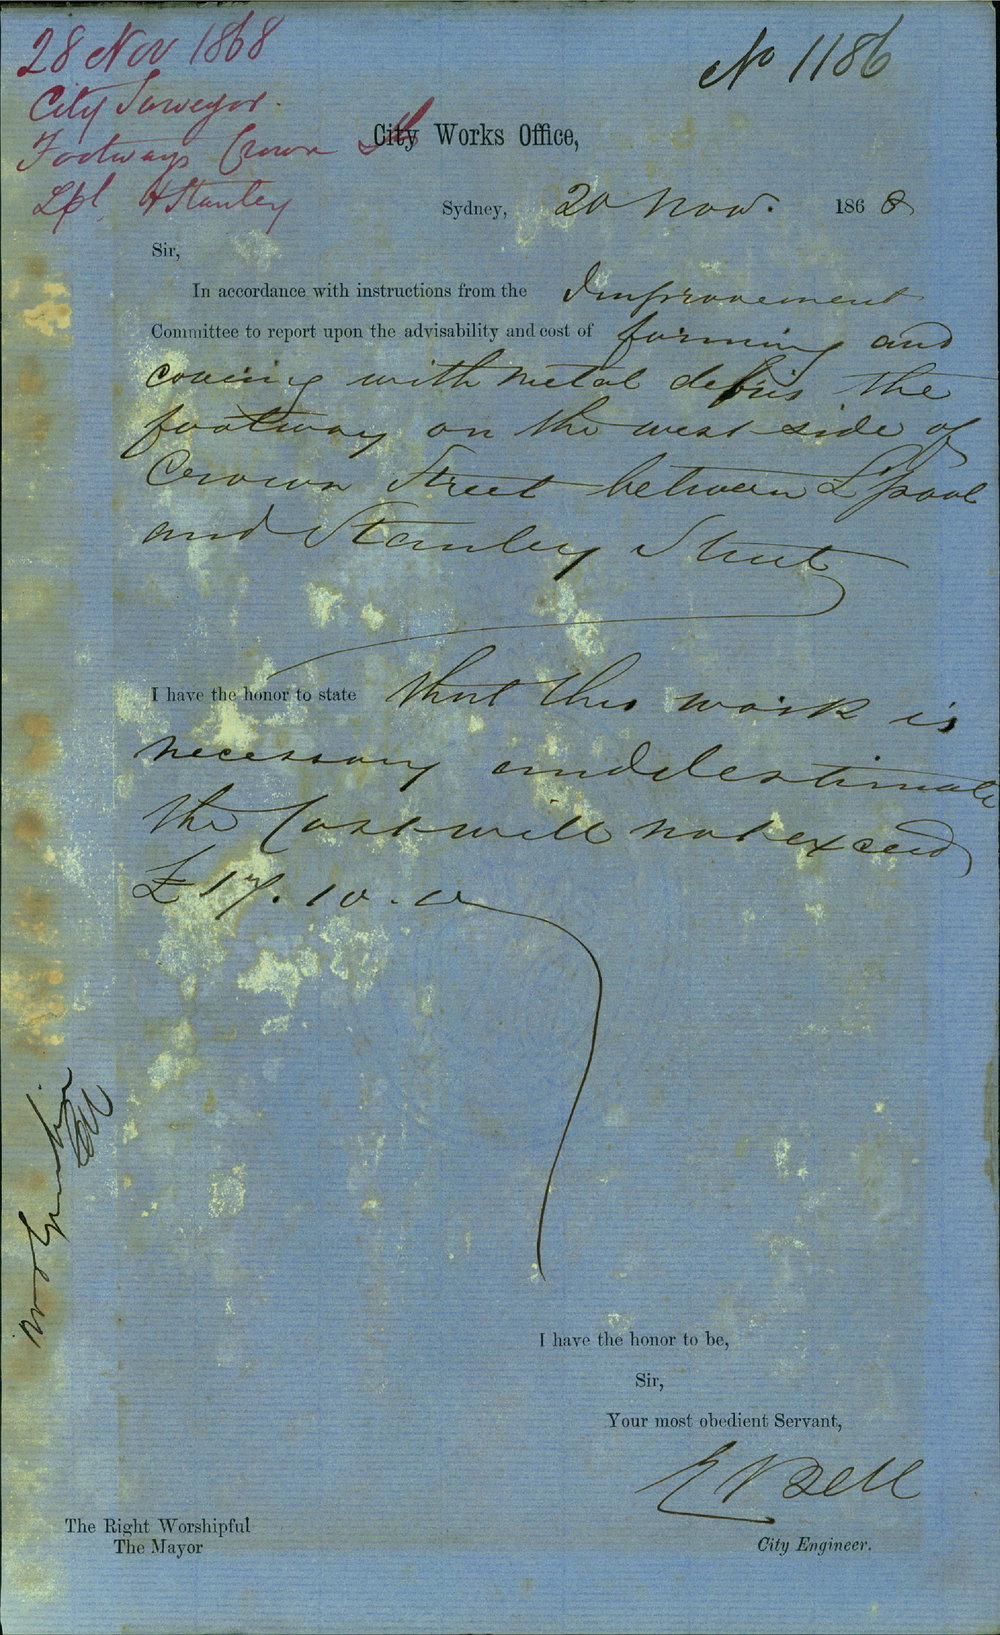 28 Nov 1868
City Surveyor.
Footways Crown St
Lpl & Stanley
No 1186
City Works Office,
Sydney, 20 Nov. 1868
Sir,
In accordance with instructions from the Improvement
Committee to report upon the advisability and cost of forming and
covering with metal debris the
footway on the west side of
Crown Street between L'pool
and Stanley Street
I have the honor to state that this work is
necessary and I estimate
the Cost will not exceed
£17.10.0
I have the honor to be,
Sir,
Your most obedient Servant,
E Bell
City Engineer.
The Right Worshipful
The Mayor